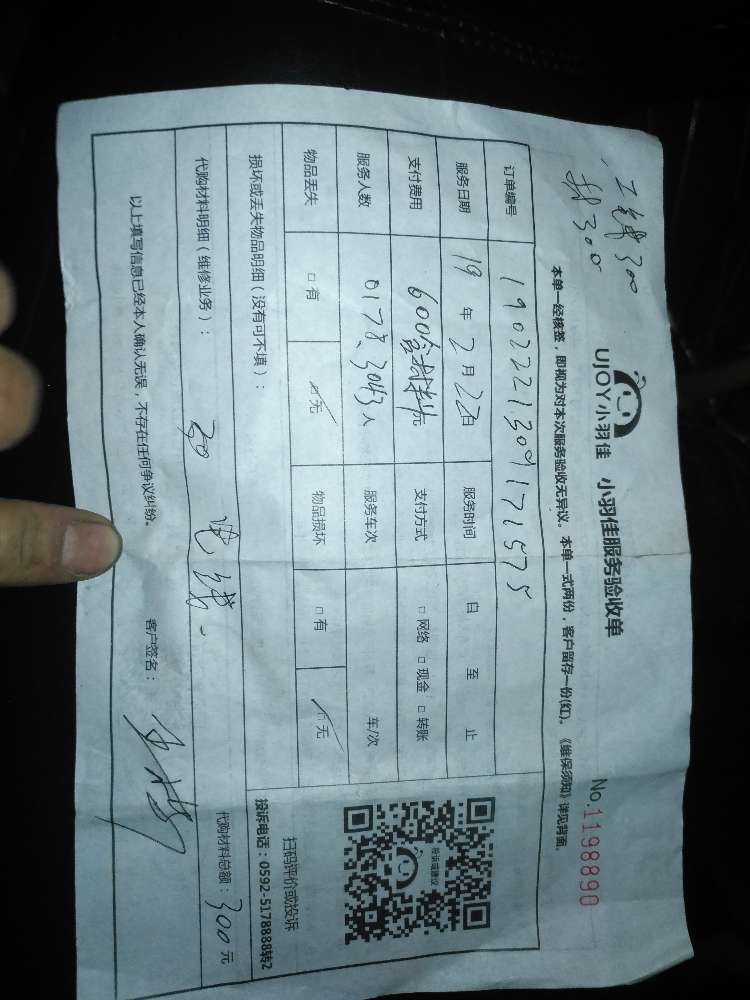 工钱300
材300
UJOY小羽佳 小羽佳服务验收单
No.1198890
本单一经核签，即视为对本次服务验收无异议。本单一式两份，客户留存一份(红)。《维保须知》详见背面。
订单编号 190222130917157 5
服务日期 19年2月22日 服务时间 自 至 止
支付费用 600含材料费 支付方式 □网络 □现金 □转账
服务人数 0178、3043人 服务车次 车/次
物品丢失 □有 □无 物品损坏 □有 □无
损坏或丢失物品明细（没有可不填）：
扫码评价或投诉
投诉电话：0592-5178888转2
投诉或建议
代购材料明细（维修业务）： 电线 代购材料总额：300元
以上填写信息已经本人确认无误，不存在任何争议纠纷。 客户签名：